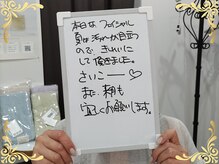 本日は フェイシャル
夏は 汗や
ので きれいに
して 頂きました。
さいこーー♡
また 来月も
宜しくお願いします。